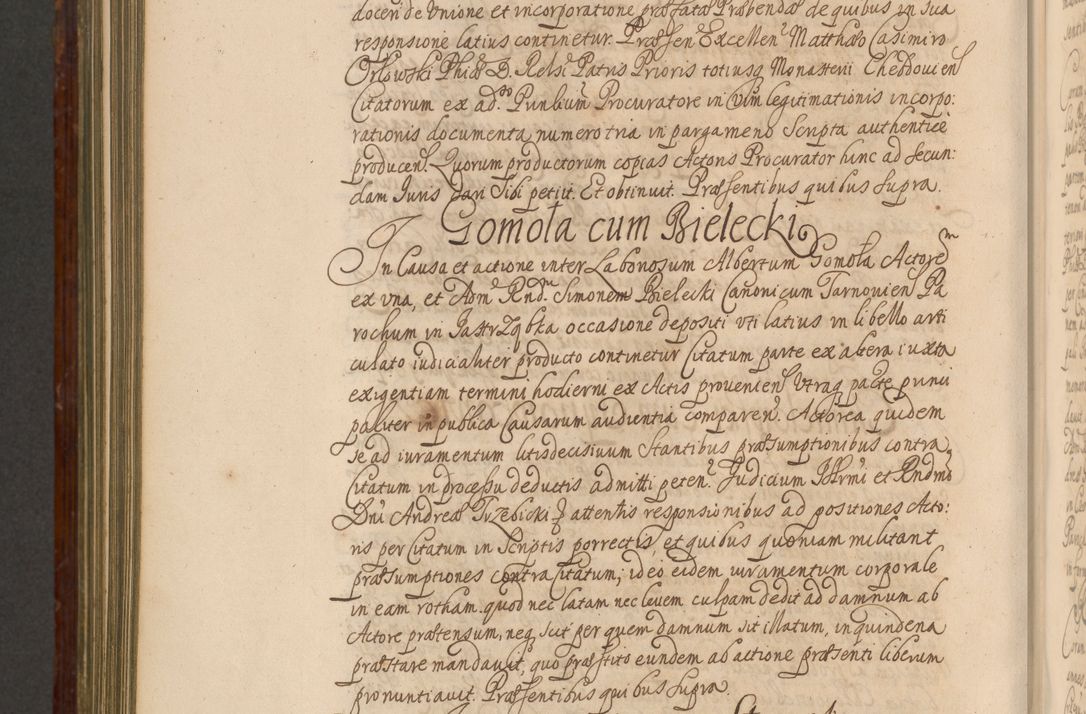 docen de Unione et incorporatione præfatæ Præbendæ de quibus in sua
responsione latius continetur. Præsen Excellen Matthæo Casimiro
Orłowski Phiæ D. Relsi Patris Prioris totiusq Monasterii Cheddovien
Citatorum ex ad. Punbium Procuratore in Vim legitimationis incorpo:
rationis documenta numero tria in pargameno Scripta authentice
producen. Quorum productorum copias Actoris Procurator hinc ad Secun:
dam Juris dari Sibi petiit. Et obtinuit. Præsentibus quibus supra.
Gomoła cum Bielecki
In Causa et actione inter Labonosum Albertum Gomoła Actorem
ex una, et Adm. Rnd. Simonem Bielecki Canonicum Tarnovien Pa
rochum in Jastrząbka occasione depositi uti latius in libello arti
culato iudicialiter producto continetur Citatum parte ex altera iuxta
exigentiam termini hodierni ex Actis provenien Utraq parte princi
paliter in publica Causarum audientia comparen. Actorea quidem
se ad iuramentum litisdecisivum Stantibus præsumptionibus contra
Citatum in processu deductis admitti peten. Judicium Illrmi et Rndmi
Dni Andreæ Trzebicki attentis responsionibus ad positiones Acto:
ris per Citatum in Scriptis porrectis, et quibus quoniam militant
præsumptiones contra Citatum, ideo eidem iuramentum corporale
in eam rotham. quod nec latam nec levem culpam dedit ad damnum ab
Actore prætensum, neq scit per quem damnum sit illatum, in quindena
præstare mandavit, quo præstito eundem ab actione præsenti liberum
pronuntiavit. Præsentibus quibus supra.